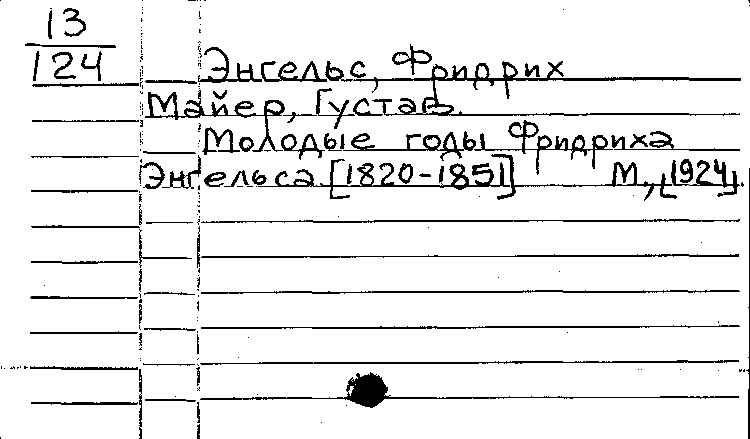 13
124
Энгельс, Фридрих
Майер, Густав.
Молодые годы Фридриха
Энгельса. [1820-1851] М., [1924].